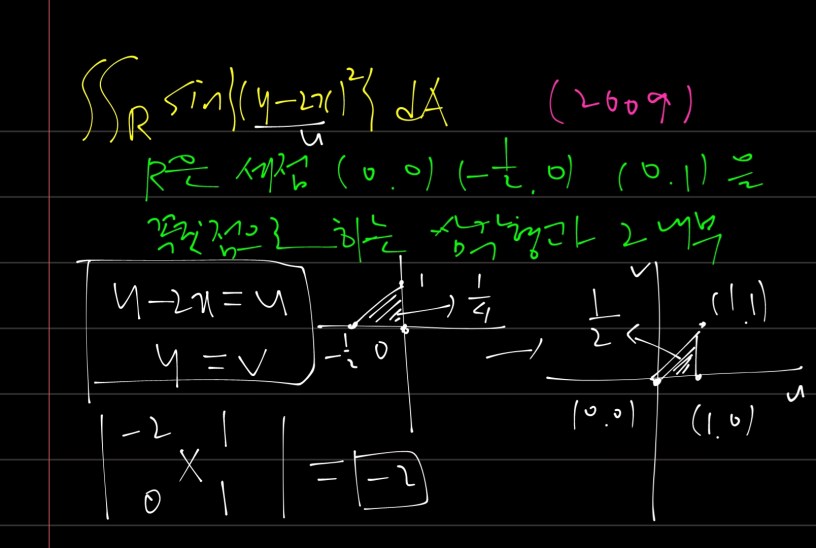 ∬_R sin{(y-2x)²} dA (2009)
u
R은 세점 (0.0) (-1/2.0) (0.1)을
꼭짓점으로 하는 삼각형과 그 내부
y-2x=u
y=v
1
1/4
-1/2 0
→
v
1/2
(1.1)
u
(0.0) (1.0)
|-2 1|
|0 1| = -2